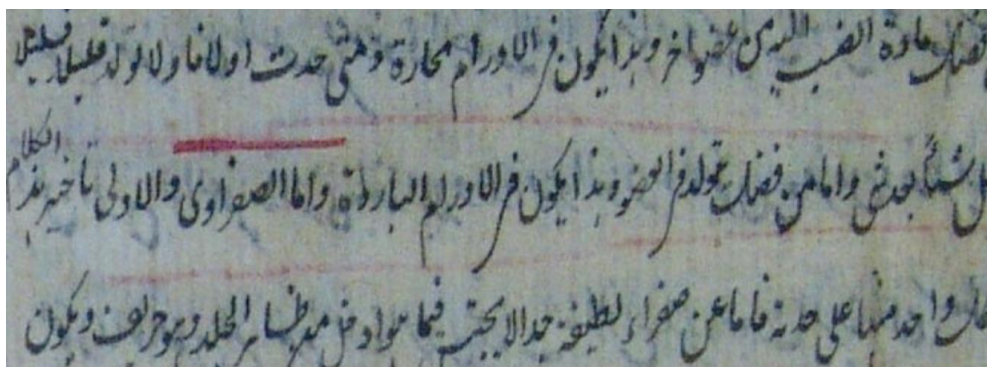 فضلات مادة انصب اليه من عضو اخر وهذا يكون فى الاورام الحارة وهى حدثت اولا فاولا لا تولد قليلا قليلا
بل شيئا بعد شئ واما من فضلات تتولد فى العضو وهذا يكون فى الاورام الباردة واما الصفراوى والاولى تاخير هذا الكلام
واحد منها على حدته فاما عن صفراء لطيفة جدا لا يحتبس فيما هو داخل من ظاهر الجلد وهو حريف ويكون